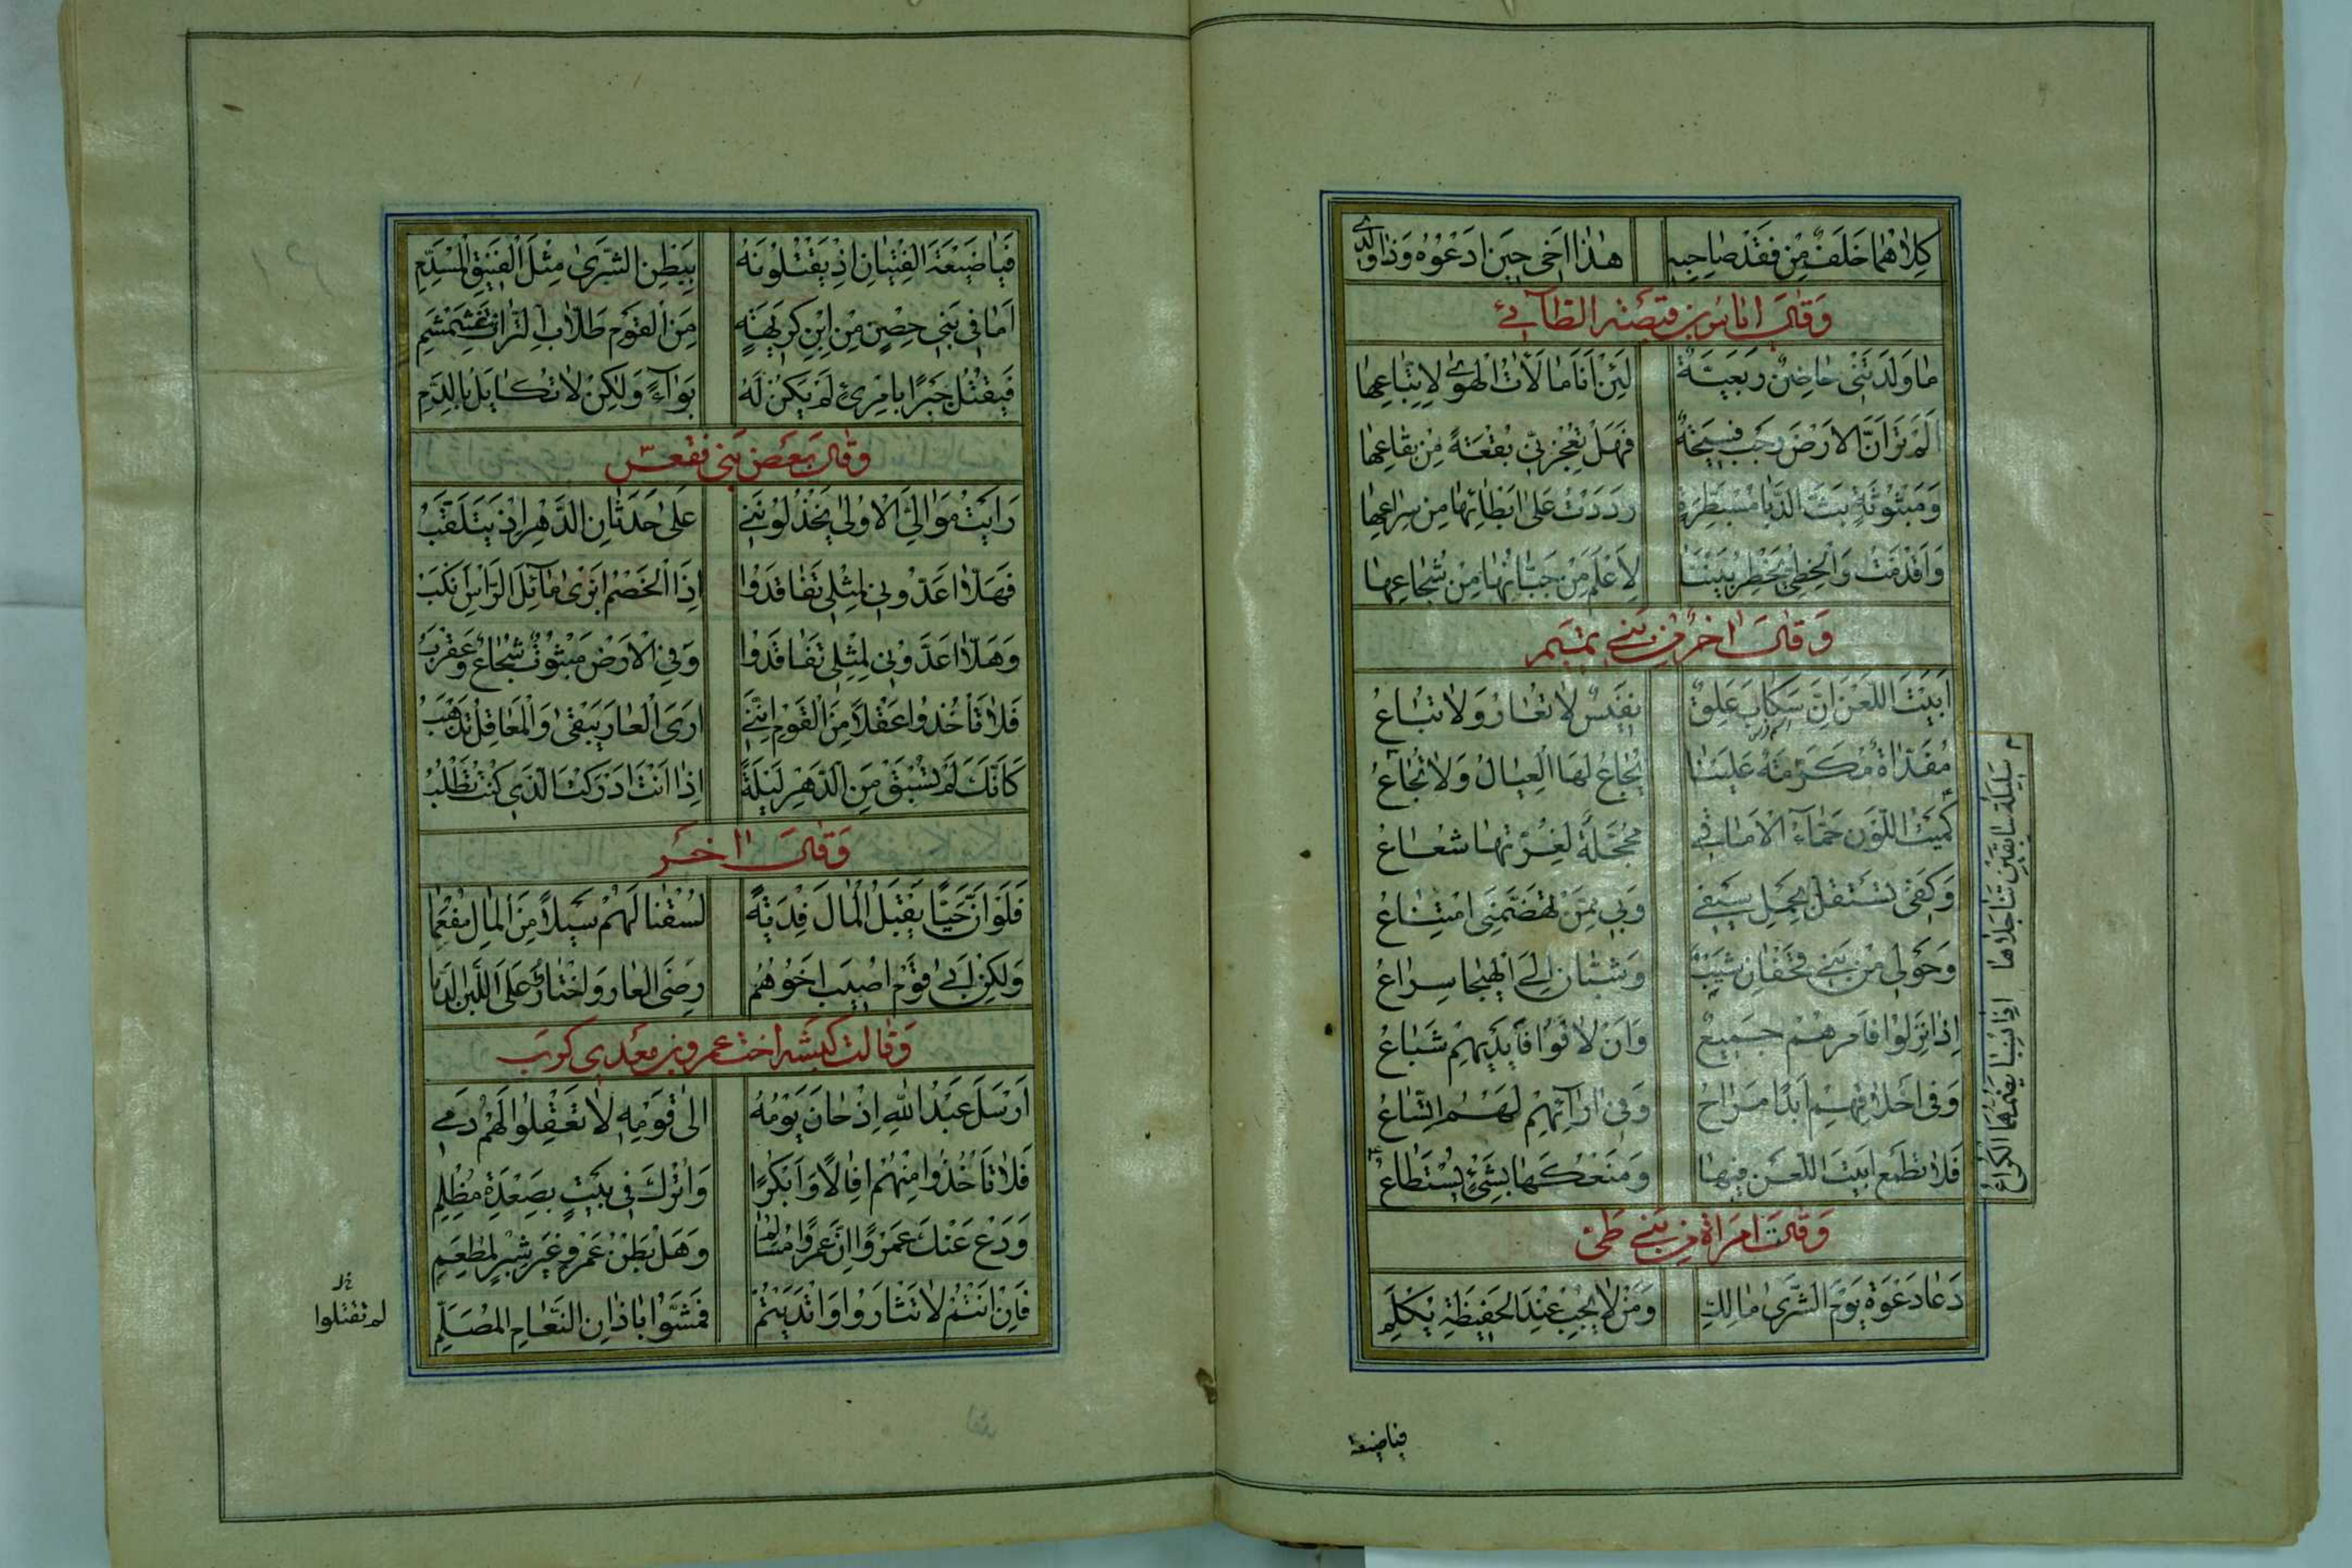 كِلاهُمَا خَلَفٌ مِنْ فَقْدِ صَاحِبِهِ هٰذَا اَخِي حِينَ اَدْعُوهُ وَذَا وَلَدِي
وَقَالَ اناس بن قبيصة الطآئي
مَا وَلَدَتْنِي حَاضِنٌ رَبَعِيَّةٌ لَئِنْ اَنَا مَالَأْتُ الْهَوىٰ لِاتِّبَاعِهَا
اَلَمْ تَرَ اَنَّ الاَرْضَ رَحْبٌ فَسِيحَةٌ فَهَلْ تُعْجِزَنِّي بُقْعَةٌ مِنْ بِقَاعِهَا
وَمَبْثُوثَةٍ بَثَّ الدَّبَا مُسْبَطِرَّةٍ رَدَدْتُ عَلىٰ بِطَائِهَا مِنْ سِرَاعِهَا
وَاَقْدَمْتُ وَالْخَطِّيُّ يَخْطِرُ بَيْنَنَا لِاَعْلَمَ مَنْ جَبَانُهَا مِنْ شُجَاعِهَا
وَقَالَ اخر من بني تميم
اَبَيْتَ اللَّعْنَ اِنَّ سَكَابِ عِلْقٌ نَفِيسٌ لَا تُعَارُ وَلَا تُبَاعُ
مُفَدَّاةٌ مُكَرَّمَةٌ عَلَيْنَا يُجَاعُ لَهَا الْعِيَالُ وَلَا تُجَاعُ
كُمَيْتُ اللَّوْنِ حَمَّاءُ الْاَمَاقِي مُحَجَّلَةٌ لِغُرَّتِهَا شُعَاعُ
وَكَفِّي تَسْتَقِلُّ بِحَمْلِ سَيْفِي وَبِي مِمَّنْ تَهَضَّمَنِي امْتِنَاعُ
وَحَوْلِي مِنْ بَنِي قَحْفَانَ شِيبٌ وَشُبَّانٌ اِلَى الْهَيْجَا سِرَاعُ
اِذَا نَزَلُوا فَاَمْرُهُمْ جَمِيعٌ وَاَنْ لَاقَوْا فَاَيْدِيهِمْ شَبَاعُ
وَفِي اَحْلَافِهِمْ اَبَدًا مَرَاحٌ وَفِي اٰرَائِهِمْ لَهُمُ اتِّسَاعُ
فَلَا تَطْمَعْ اَبَيْتَ اللَّعْنَ فِيهَا وَمَنْعُكَهَا بِشَيْءٍ يُسْتَطَاعُ
سَلِيلَةُ سَابِقَيْنِ تَنَاجَلَاهَا اِذَا نُسِبَا يَضُمُّهُمَا الْكُرَاعُ
وَقَالَتِ امْرَاَةٌ من بني طي
دَعَا دَعْوَةً يَوْمَ الشَّرىٰ مَالِكٍ وَمَنْ لَا يُجِبْ عِنْدَ الْحَفِيظَةِ يُكْلَمِ
فياضيعة
فَيَا ضَيْعَةَ الْفِتْيَانِ اِذْ يَقْتُلُونَهُ بِبَطْنِ الشَّرىٰ مِثْلَ الْفَنِيقِ الْمُسَدَّمِ
اَمَا فِي بَنِي حِصْنٍ مِنِ ابْنِ كَرِيهَةٍ مِنَ الْقَوْمِ طَلَّابِ التِّرَاتِ غَشَمْشَمِ
فَيَقْتُلَ جَبْرًا بِامْرِئٍ لَمْ يَكُنْ لَهُ بَوَاءً وَلٰكِنْ لَا تُكَايُلَ بِالدَّمِ
وَقَالَ بَعْضُ بَنِي فقعس
رَاَيْتُ مَوَالِيَّ الْاُولىٰ يَخْذُلُونَنِي عَلىٰ حَدَثَانِ الدَّهْرِ اِذْ يَتَقَلَّبُ
فَهَلَّا اَعَدُّونِي لِمِثْلِي تَفَاقَدُوا اِذَا الْخَصْمُ اَبْزىٰ مَائِلُ الرَّأْسِ اَنْكَبُ
وَهَلَّا اَعَدُّونِي لِمِثْلِي تَفَاقَدُوا وَفِي الْاَرْضِ مَبْثُوثٌ شُجَاعٌ وَعَقْرَبُ
فَلَا تَأْخُذُوا عَقْلًا مِنَ الْقَوْمِ اِنَّنِي اَرَى الْعَارَ يَبْقىٰ وَالْمَعَاقِلُ تَذْهَبُ
كَاَنَّكَ لَمْ تُسْبَقْ مِنَ الدَّهْرِ لَيْلَةً اِذَا اَنْتَ اَدْرَكْتَ الَّذِي كُنْتَ تَطْلُبُ
وَقَالَ اٰخر
فَلَوْ اَنَّ حَيًّا يَقْبَلُ الْمَالَ فِدْيَةً لَسُقْنَا لَهُمْ سَيْلًا مِنَ الْمَالِ مُفْعَمَا
وَلٰكِنْ اَبىٰ قَوْمٌ اُصِيبَ اَخُوهُمُ رِضَى الْعَارِ وَاخْتَارُوا عَلَى اللَّبَنِ الدَّمَا
وَقَالت كبشة اخت عمرو بن معدي كرب
اَرْسَلَ عَبْدُ اللهِ اِذْ حَانَ يَوْمُهُ اِلىٰ قَوْمِهِ لَا تَعْقِلُوا لَهُمْ دَمِي
فَلَا تَأْخُذُوا مِنْهُمْ اِفَالًا وَاَبْكُرًا وَاُتْرَكَ فِي بَيْتٍ بِصَعْدَةَ مُظْلِمِ
وَدَعْ عَنْكَ عَمْرًوا اِنَّ عَمْرًوا مُسَالِمٌ وَهَلْ بَطْنُ عَمْرٍو غَيْرُ شِبْرٍ لِمَطْعَمِ
فَاِنْ اَنْتُمُ لَا تَثْأَرُوا وَاتَّدَيْتُمُ فَمَشَّوْا بِاٰذَانِ النَّعَامِ الْمُصَلَّمِ
لم تقتلوا